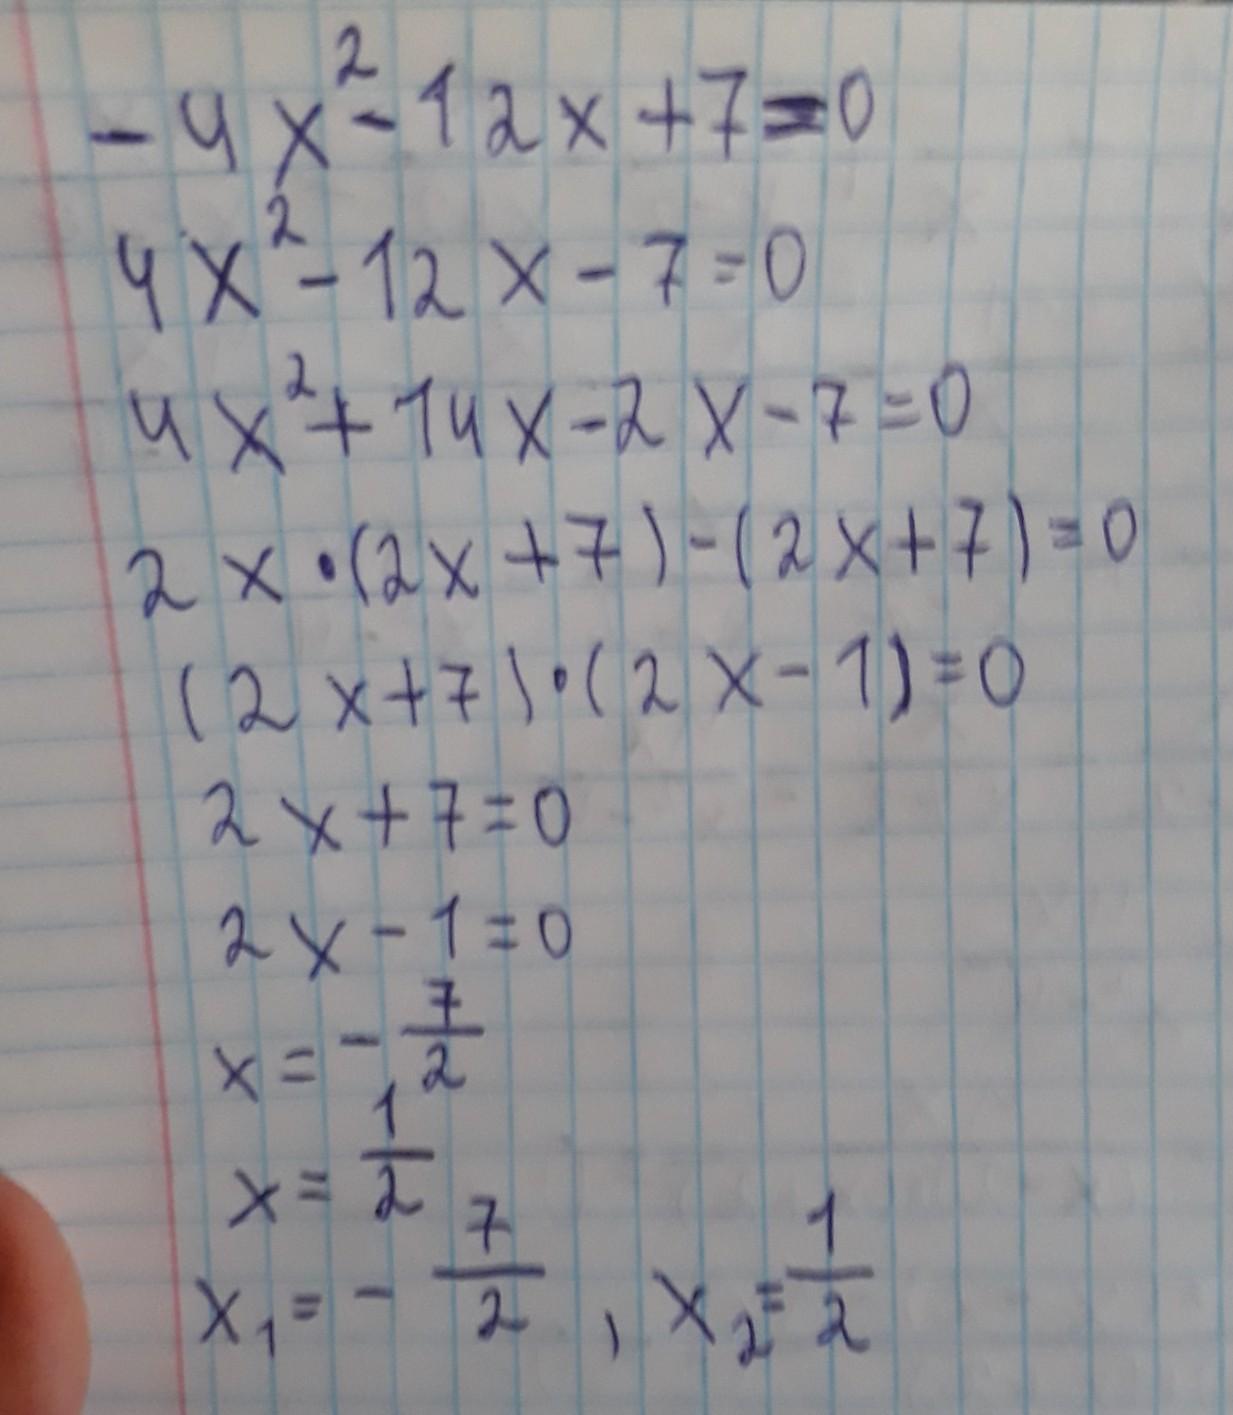 -4x²-12x+7=0
4x²-12x-7=0
4x²+14x-2x-7=0
2x·(2x+7)-(2x+7)=0
(2x+7)·(2x-1)=0
2x+7=0
2x-1=0
x=-7/2
x=1/2
x₁=-7/2, x₂=1/2